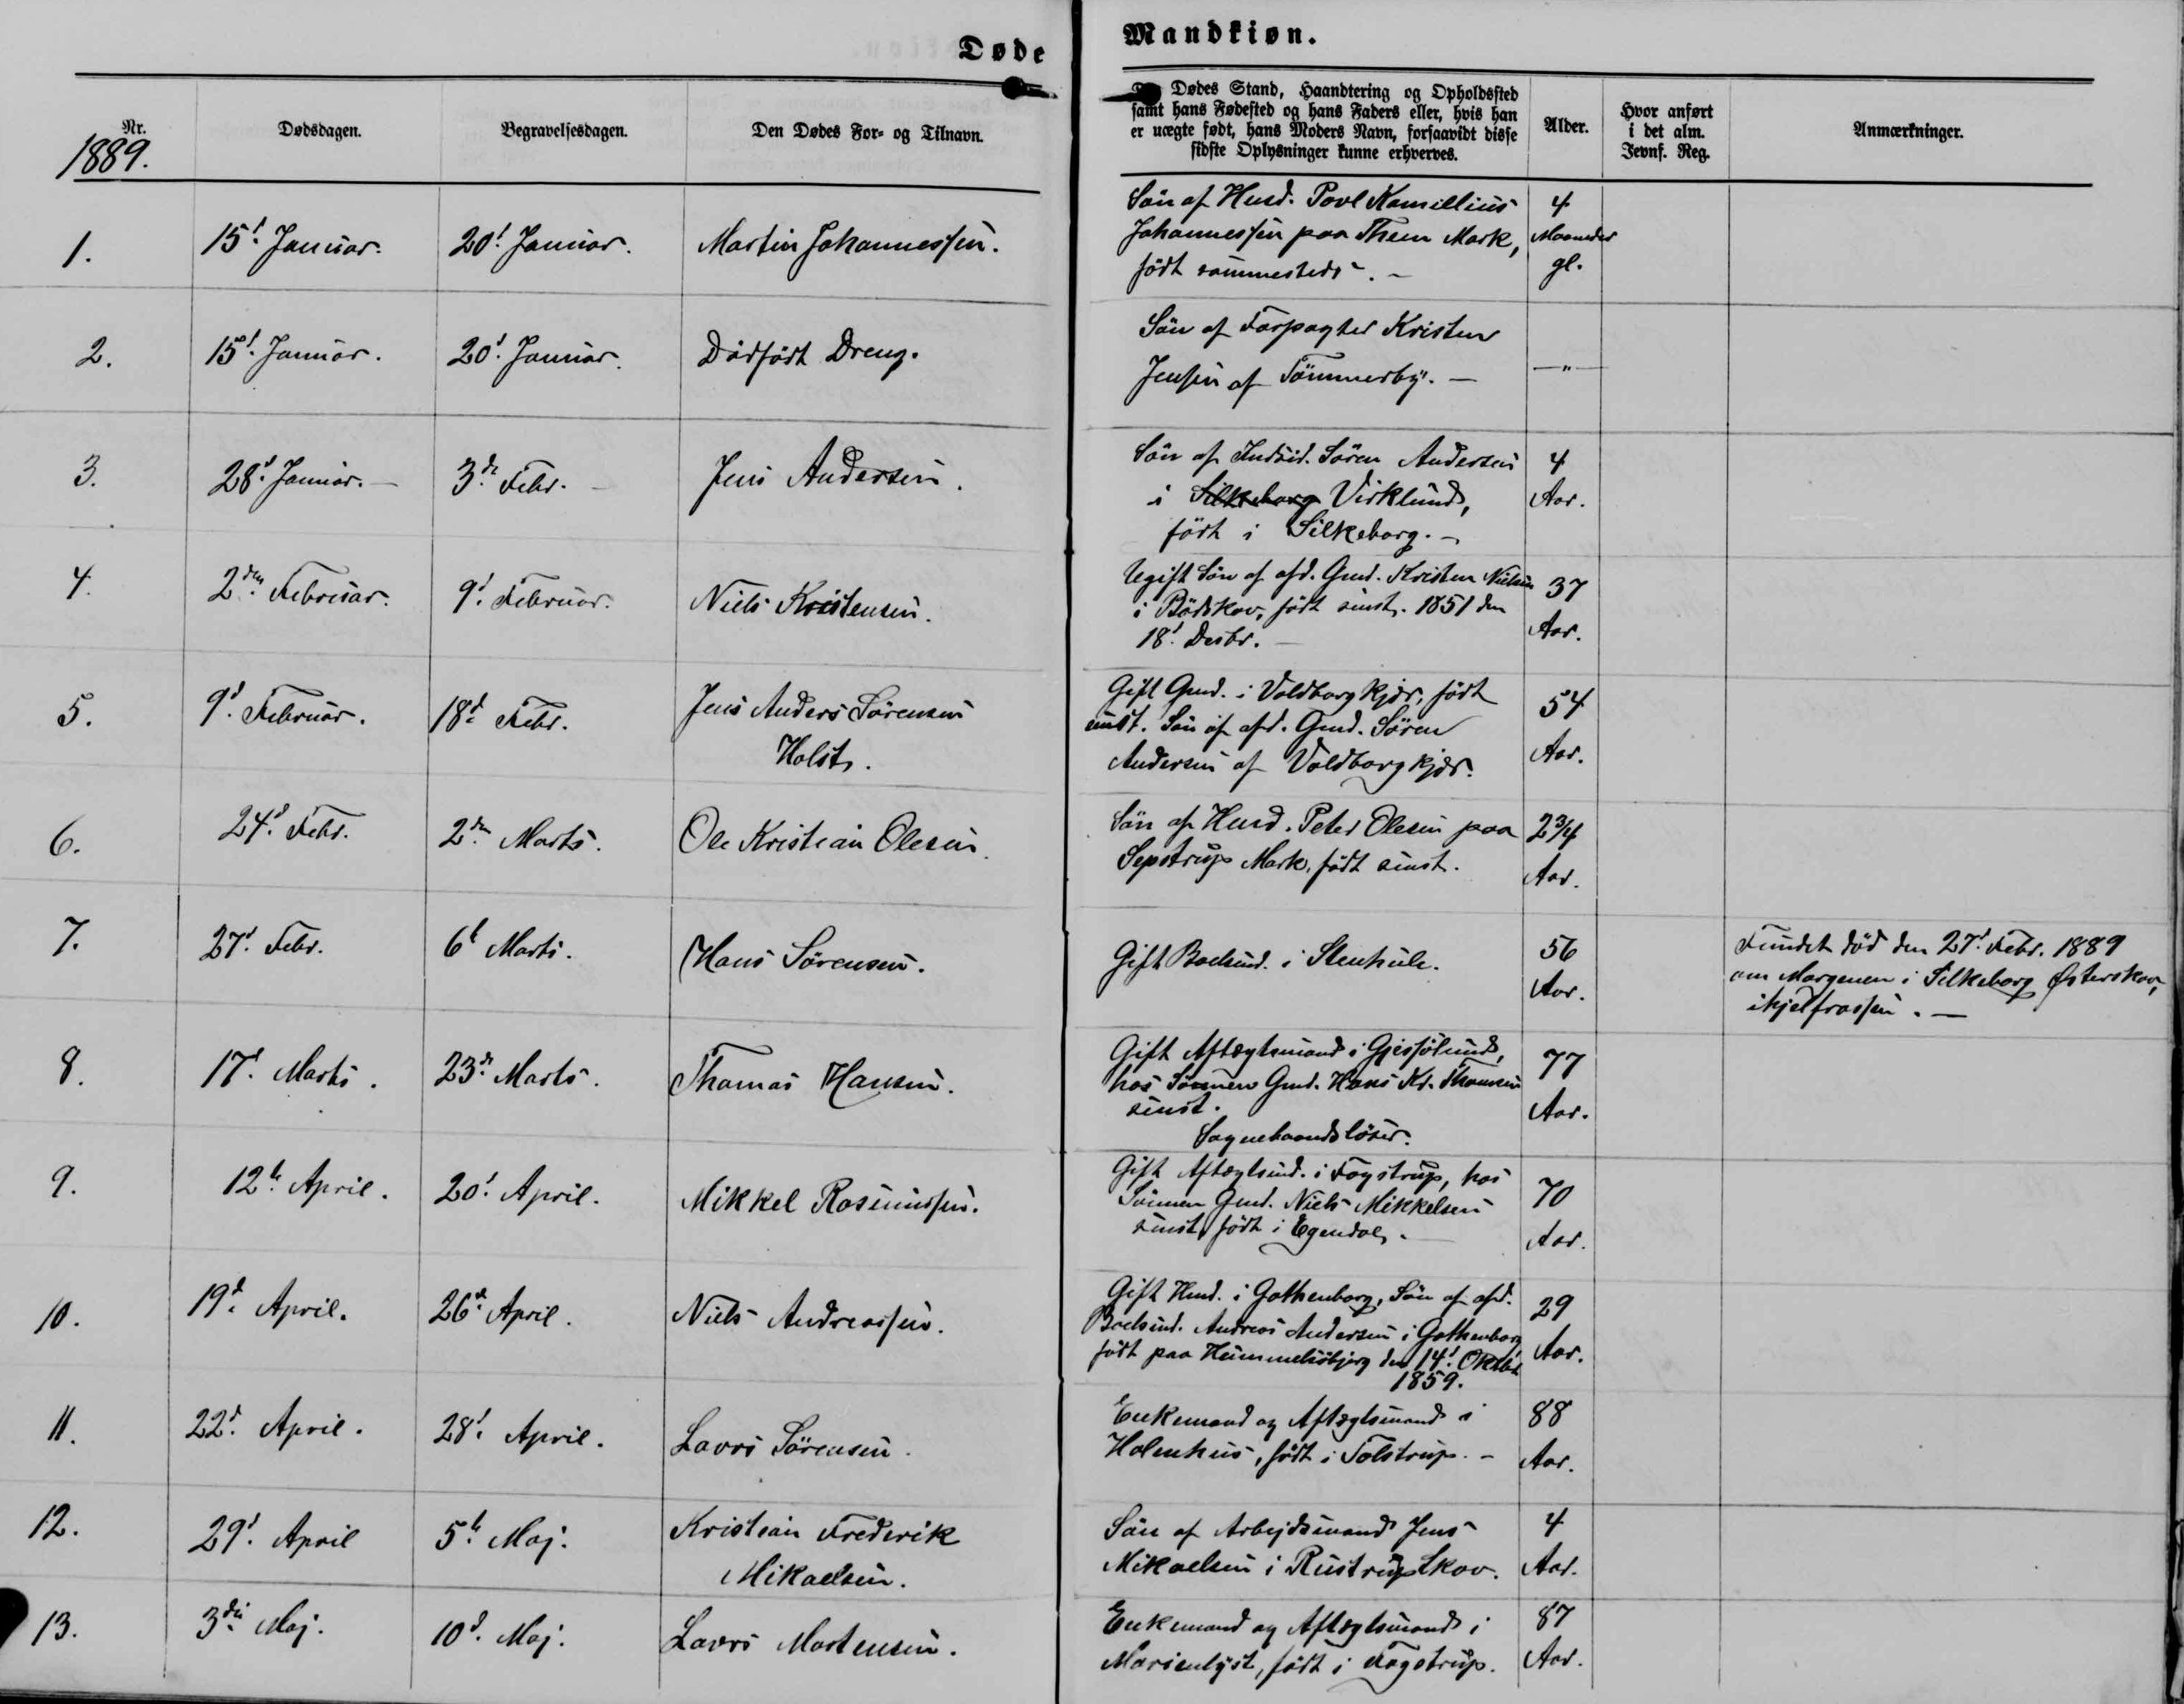 Døde
Mandkiøn.
Nr.
Dødsdagen.
Begravelsesdagen.
Den Dødes For- og Tilnavn.
Dødes Stand, Haandtering og Opholdssted
samt hans Fødested og hans Faders eller, hvis han
er uægte født, hans Moders Navn, forsaavidt disse
sidste Oplysninger kunne erhverves.
Alder.
Hvor anført
i det alm.
Jevnf. Reg.
Anmærkninger.
1889.
1.
15d. Januar.
20d. Januar.
Martin Johannessen.
Søn af Husd. Povl Kamillius
Johannessen paa Them Mark,
født sammesteds. -
4
Maaneder
gl.
2.
15d. Januar.
20d. Januar.
Dødfødt Dreng.
Søn af Forpagter Kristen
Jensen af Tømmerby. -
-"-
3.
28d. Januar. -
3de Febr. -
Jens Andersen.
Søn af Indsid. Søren Andersen
i Silkeborg Virklund,
født i Silkeborg. -
4
Aar.
4.
2den Februar.
9d. Februar.
Niels Kristensen.
Ugift Søn af afd. Gmd. Kristen Nielsen
i Bødskov, født smst. 1851 den
18d. Desbr. -
37
Aar.
5.
9d. Februar.
18d. Febr.
Jens Anders Sørensen
Holst.
Gift Gmd. i Voldborgkjær, født
smst. Søn af afd. Gmd. Søren
Andersen af Voldborgkjær.
54
Aar.
6.
24d. Febr.
2den Marts.
Ole Kristian Olesen.
Søn af Husd. Peter Olesen paa
Sepstrup Mark, født smst.
2¾
Aar.
7.
27d. Febr.
6t Marts.
Hans Sørensen.
Gift Boelsmd. i Stenhule.
56
Aar.
Fundet død den 27d. Febr. 1889
om Morgenen i Silkeborg Østerskov,
ihjelfrossen. -
8.
17d. Marts.
23de Marts.
Thomas Hansen.
Gift Aftægtsmand i Gjessølund,
hos Sønnen Gmd. Hans Kr. Thomsen
smst.
Sognebaandsløser.
77
Aar.
9.
12te April.
20d. April.
Mikkel Rasmussen.
Gift Aftægtsmd. i Fogstrup, hos
Sønnen Gmd. Niels Mikkelsen
smst., født i Egendal. -
70
Aar.
10.
19d. April.
26d. April.
Niels Andreassen.
Gift Husd. i Gothenborg, Søn af afd.
Boelsmd. Andreas Andersen i Gothenborg,
født paa Himmelsbjerg den 14d. Oktbr
1859.
29
Aar.
11.
22d. April.
28d. April.
Lavrs Sørensen.
Enkemand og Aftægtsmand i
Holenhus, født i Tolstrup. -
88
Aar.
12.
29d. April
5te Maj.
Kristian Frederik
Mikaelsen.
Søn af Arbejdsmand Jens
Mikaelsen i Rustrup Skov.
4
Aar.
13.
3die Maj.
10d. Maj.
Lavrs Mortensen.
Enkemand og Aftægtsmand i
Marienlyst, født i Fogstrup.
87
Aar.